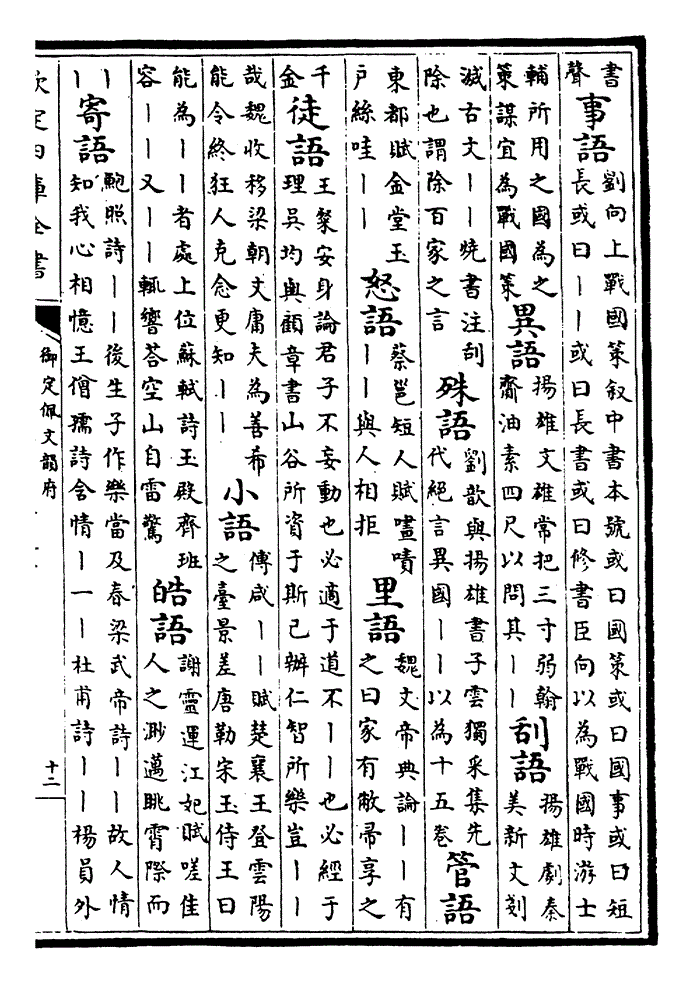 書聲事語劉向上戰國策叙中書本號或曰國策或曰國事或曰短長或曰丨丨或曰長書或曰修書臣向以為戰國時游士
輔所用之國為之策謀宜為戰國策異語揚雄文雄常把三寸弱翰齎油素四尺以問其丨丨刮語揚雄劇秦美新文剗
滅古文丨丨燒書注刮除也謂除百家之言殊語劉歆與揚雄書子雲獨采集先代絕言異國丨丨以為十五卷管語
東都賦金堂玉戶絲哇丨丨怒語蔡邕短人賦嚍嘖丨丨與人相拒里語魏文帝典論丨丨有之曰家有敝帚享之
千金徒語王粲安身論君子不妄動也必適于道不丨丨也必經于理吳均與顧章書山谷所資于斯已辦仁智所樂豈丨丨
哉魏收移梁朝文庸夫為善希能令終狂人克念更知丨丨小語傅咸丨丨賦楚襄王登雲陽之臺景差唐勒宋玉侍王曰
能為丨丨者處上位蘇軾詩王殿齊班容丨丨又丨丨輒響荅空山自雷驚皓語謝靈運江妃賦嗟佳人之渺邁眺霄際而
丨丨寄語鮑照詩丨丨後生子作樂當及春梁武帝詩丨丨故人情知我心相憶王僧孺詩含情丨一丨杜甫詩丨丨楊員外
欽定四庫全書
御定佩文韻府
十二